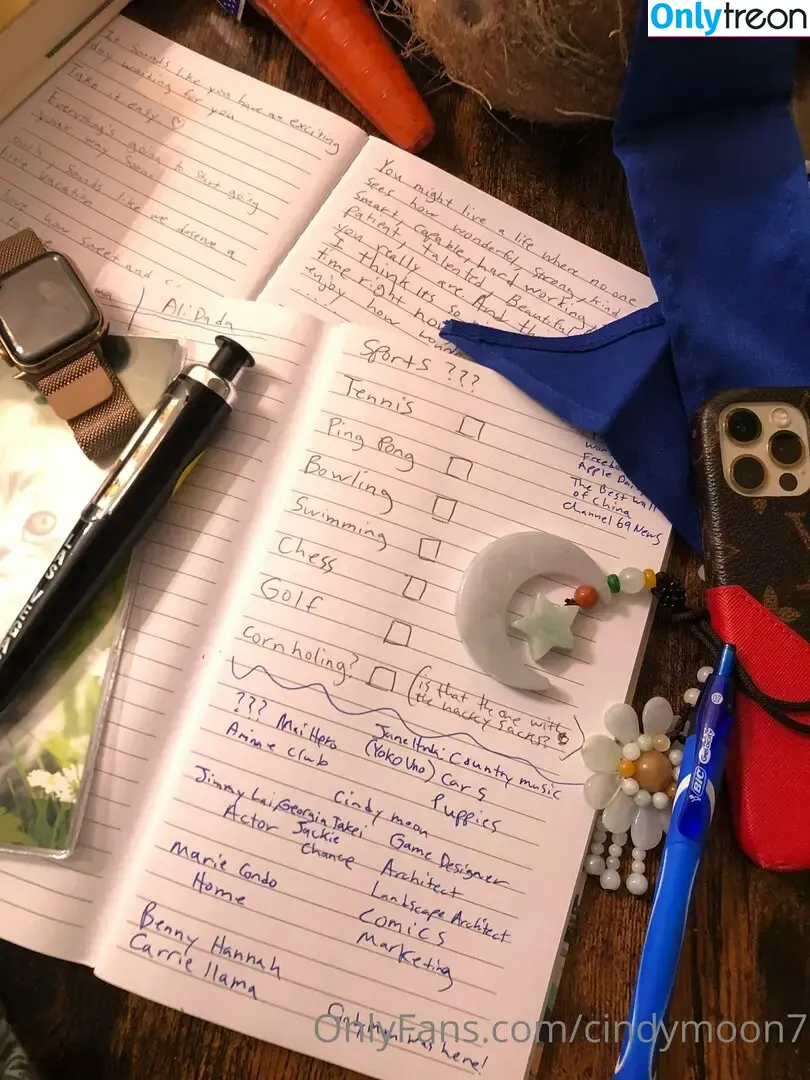 Onlytreon
It Sounds like you have an exciting
day waiting for you
Take it easy ♡
Everything's going to start going
your way soon
sounds like we deserve a
vacation
how sweet and
Ali Dada
You might live a life where no one
sees how wonderful, strong, kind
smart, capable, hard working,
patient, talented, Beautiful
you really are And
I think its so
time right now
enjoy how
.....
Sports ???
Tennis
Ping Pong
Bowling
Swimming
Chess
Golf
Cornholing?
(is that the one with
the hacky sacks?)
Apple Dai
The Best Wall
of China
Channel 69 News
??? Mei Hero
Anime club
Country music
(Yoko Uno) Cars
Puppies
Cindy moon
Jimmy Lai, Georgia Takei
Actor Jackie
Chance
Game Designer
Architect
Landscape Architect
Marie Condo
Home
Comics
Marketing
Benny Hannah
Carrie llama
was here!
BIC
OnlyFans.com/cindymoon7